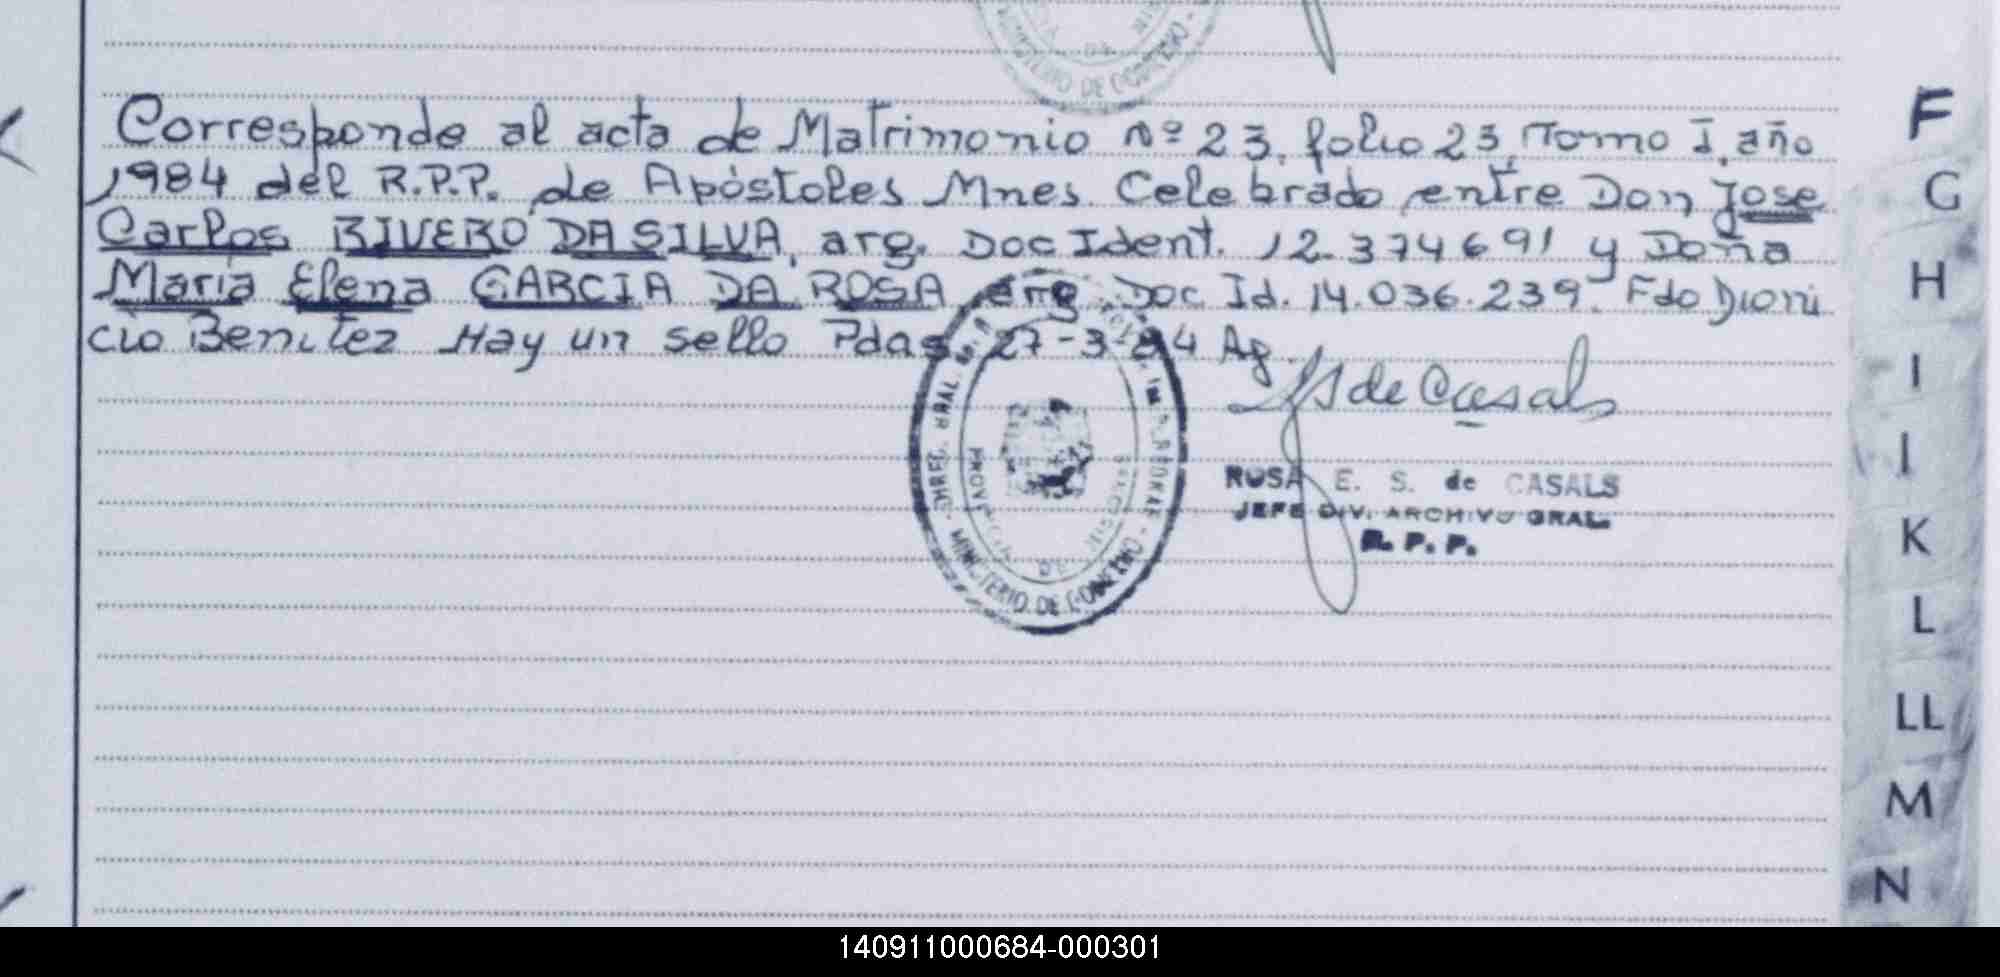 MINISTERIO DE GOBIERNO -
Corresponde al acta de Matrimonio Nº 23, folio 23, Tomo I, año
1984 del R.P.P. de Apóstoles Mnes. Celebrado entre Don Jose
Carlos RIVERO DA SILVA, arg. Doc Ident. 12.374691 y Doña
María Elena GARCIA DA ROSA, arg. Doc Id. 14.036.239. Fdo Dioni
cio Benitez Hay un sello Pdas 27-3-84 Ag.
S de Casals
ROSA E. S. de CASALS
JEFE DIV. ARCHIVO GRAL.
R. P. P.
MINISTERIO DE GOBIERNO -
PROVINCIA DE MISIONES
F
G
H
I
I
K
L
LL
M
N
140911000684-000301